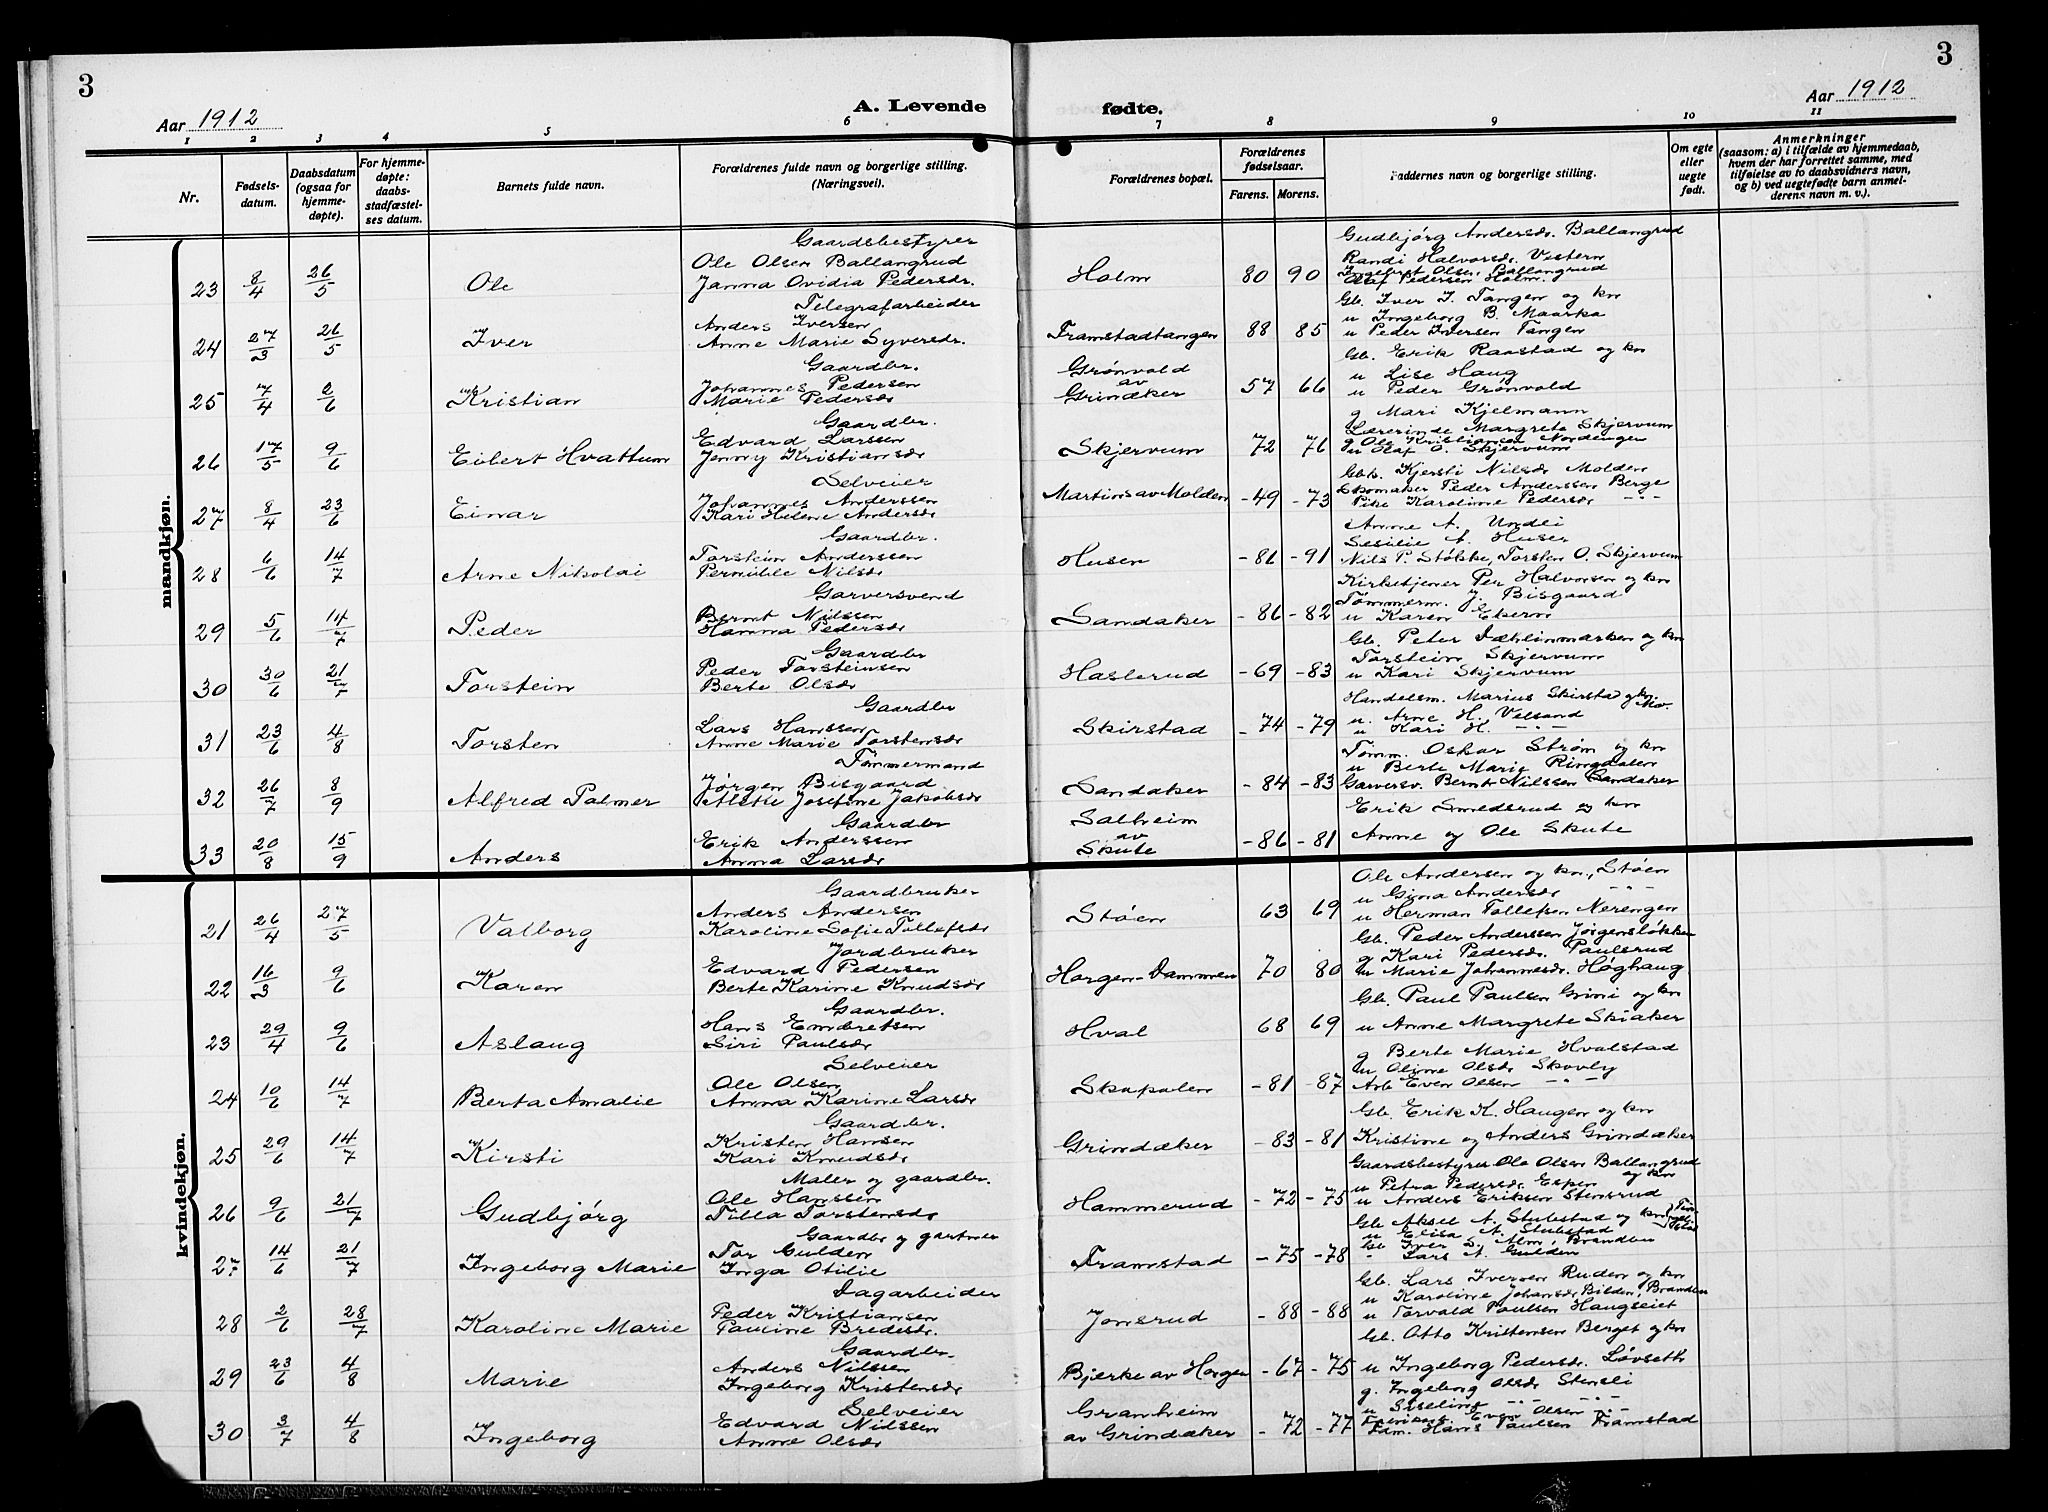 3
3
Aar 1912
A. Levende
fødte.
Aar 1912
1 2 3 4 5 6 7 8 9 10 11
Nr.
Fødsels-
datum.
Daabsdatum
(ogsaa for
hjemme-
døpte).
For hjemme-
døpte:
daabs-
stadfæstel-
ses datum.
Barnets fulde navn.
Forældrenes fulde navn og borgerlige stilling.
(Næringsvei).
Forældrenes bopæl.
Forældrenes
fødselsaar.
Farens. Morens.
Faddernes navn og borgerlige stilling.
Om egte
eller
uegte
født.
Anmerkninger
(saasom: a) i tilfælde av hjemmedaab,
hvem der har forrettet samme, med
tilføielse av to daabsvidners navn,
og b) ved uegtefødte barn anmel-
derens navn m. v.).
mandkjøn.
23 8/4 26/5 Ole
Gaardsbestyrer
Ole Olsen Ballangrud
Janna Ovidia Pedersdr.
Holm 80 90
Gudbjørg Andersdr. Ballangrud
Randi Halvorsdr. Vestern
Ingebret Olsen Ballangrud
Olaf Pedersen Holm.
24 27/3 26/5 Iver
Telegrafarbeider
Anders Iversen
Anne Marie Syversdr.
Framstadtangen 88 85
Gb. Iver I. Tangen og kn
u Ingeborg B. Maarka
u Peder Iversen Tangen
25 7/4 2/6 Kristian
Gaardbr.
Johannes Pedersen
Marie Pedersdr
Grønvold
av
Grindaker 57 66
Gb. Erik Raastad og kn
u Lise Haug
u Peder Grønvold
26 17/5 9/6 Eilert Hvattum
Gaardbr.
Edvard Larssen
Jenny Kristiansdr
Skjervum 72 76
g Mari Kjelmann
Lærerinde Margrete Skjervum
g. Ole Kristiansen Nordengen
u Olaf O. Skjervum
27 8/4 23/6 Einar
Selveier
Johannes Anderssen
Kari Helene Andersdr
Martins av Molden -49 -73
Kjersti Nilsdr Molden
Skomaker Peder Anderssen Berge
Pike Karoline Pedersdr -"-
28 6/6 14/7 Arne Nikolai
Gaardbr.
Torstein Anderssen
Pernille Nilsdr
Husen -81 -91
Anne A. Undei
Sesilie A. Huser
Nils P. Stølske, Torsten O. Skjervum
29 5/6 14/7 Peder
Garversvend
Bernt Nilssen
Hanna Pedersdr
Sandaker -86 -82
Kirketjener Per Halvorsen og kn
Tømmerm. J. Bisgaard
u Karen Ekern
30 30/6 21/7 Torstein
Gaardbr
Peder Torsteinsen
Berte Olsdr
Haslerud -69 -83
Gb. Peter Dæhlinmarken og kn
Torstein Skjervum
u Kari Skjervum
31 23/6 4/8 Torsten
Gaardbr
Lars Hanssen
Anne Marie Torstensdr
Skirstad -74 -79
Handelsm. Marius Skirstad og kn.
u. Arne H. Velsand
u Kari H. -"-
32 26/7 8/9 Alfred Palmer
Tømmermand
Jørgen Bisgaard
Alette Josefine Jakobsdr
Sandaker -84 -83
Tømm. Oskar Strøm og kn
u Berte Marie Ringdalen
Garversv. Bernt Nilssen Sandaker
33 20/8 15/9 Anders
Gaardbr
Erik Anderssen
Anna Larsdr
Solheim
av
Skute -86 -81
Erik Smedsrud og kn
Anne og Ole Skute
kvindekjøn.
21 26/4 27/5 Valborg
Gaardbruker
Anders Andersen
Karoline Sofie Tollefsdr
Støen 63 69
Ole Andersen og kn, Støen
u Gina Andersdr -"-
u Herman Tollefsen Nerengen
22 16/3 9/6 Karen
Jordbruker
Edvard Pedersen
Berte Karine Knudsdr
Horgen-Dammen 70 80
Gb. Peder Anderssen Jørgensløkken
g Kari Pedersdr. Paulsrud
u Marie Johannesdr. Høghaug
23 29/4 9/6 Aslaug
Gaardbr.
Hans Embretsen
Siri Paulsdr
Hval 68 69
Gb. Paul Paulsen Grini og kn
u Anne Margrete Skiaker
24 10/6 14/7 Berta Amalie
Selveier
Ole Olsen
Anna Karine Larsdr
Skapalen -81 -87
g Berte Marie Hvalstad
u Oline Olsdr Skovly
Arb Even Olsen -"-
25 29/6 14/7 Kirsti
Gaardbr.
Kristen Hansen
Kari Knudsdr
Grindaker -83 -81
Gb. Erik K. Haugen og kn
Kristine og Anders Grindaker
26 9/6 21/7 Gudbjørg
Maler og gaardbr.
Ole Hanssen
Tilla Torstensdr
Hammerud -72 -75
Gaardsbestyrer Ole Olsen Ballangrud
og kn
u Petra Pedersdr. Espen
u Anders Eriksen Stensrud
27 14/6 21/7 Ingeborg Marie
Gaardbr og gartner
Tor Gulden
Inga Otilie
Framstad -75 -78
Gb Aksel A. Stubstad og kn
u Elisa A. Stubstad
Gb Iver L. Alm, Brandbu
- Lars A. Gulden
28 2/6 28/7 Karoline Marie
Dagarbeider
Peder Kristiansen
Pauline Bredesdr.
Jonsrud -88 -88
Gb. Lars Iversen Ruden og kn
u Karoline Johansdr Bilden, Brandbu
u Torvald Paulsen Haugseiet
29 23/6 4/8 Marie
Gaardbr.
Anders Nilssen
Ingeborg Kristensdr
Bjerke av Horgen -67 -75
Gb. Otto Kristensen Berget og kn
u Ingeborg Pedersdr. Løvseth
30 3/7 4/8 Ingeborg
Selveier
Edvard Nilssen
Anne Olsdr
Granheim
av Grindaker -72 -77
g. Ingeborg Olsdr Stensli
u Siseling -"-
Even Olsen -"-
Hans Paulsen Framstad